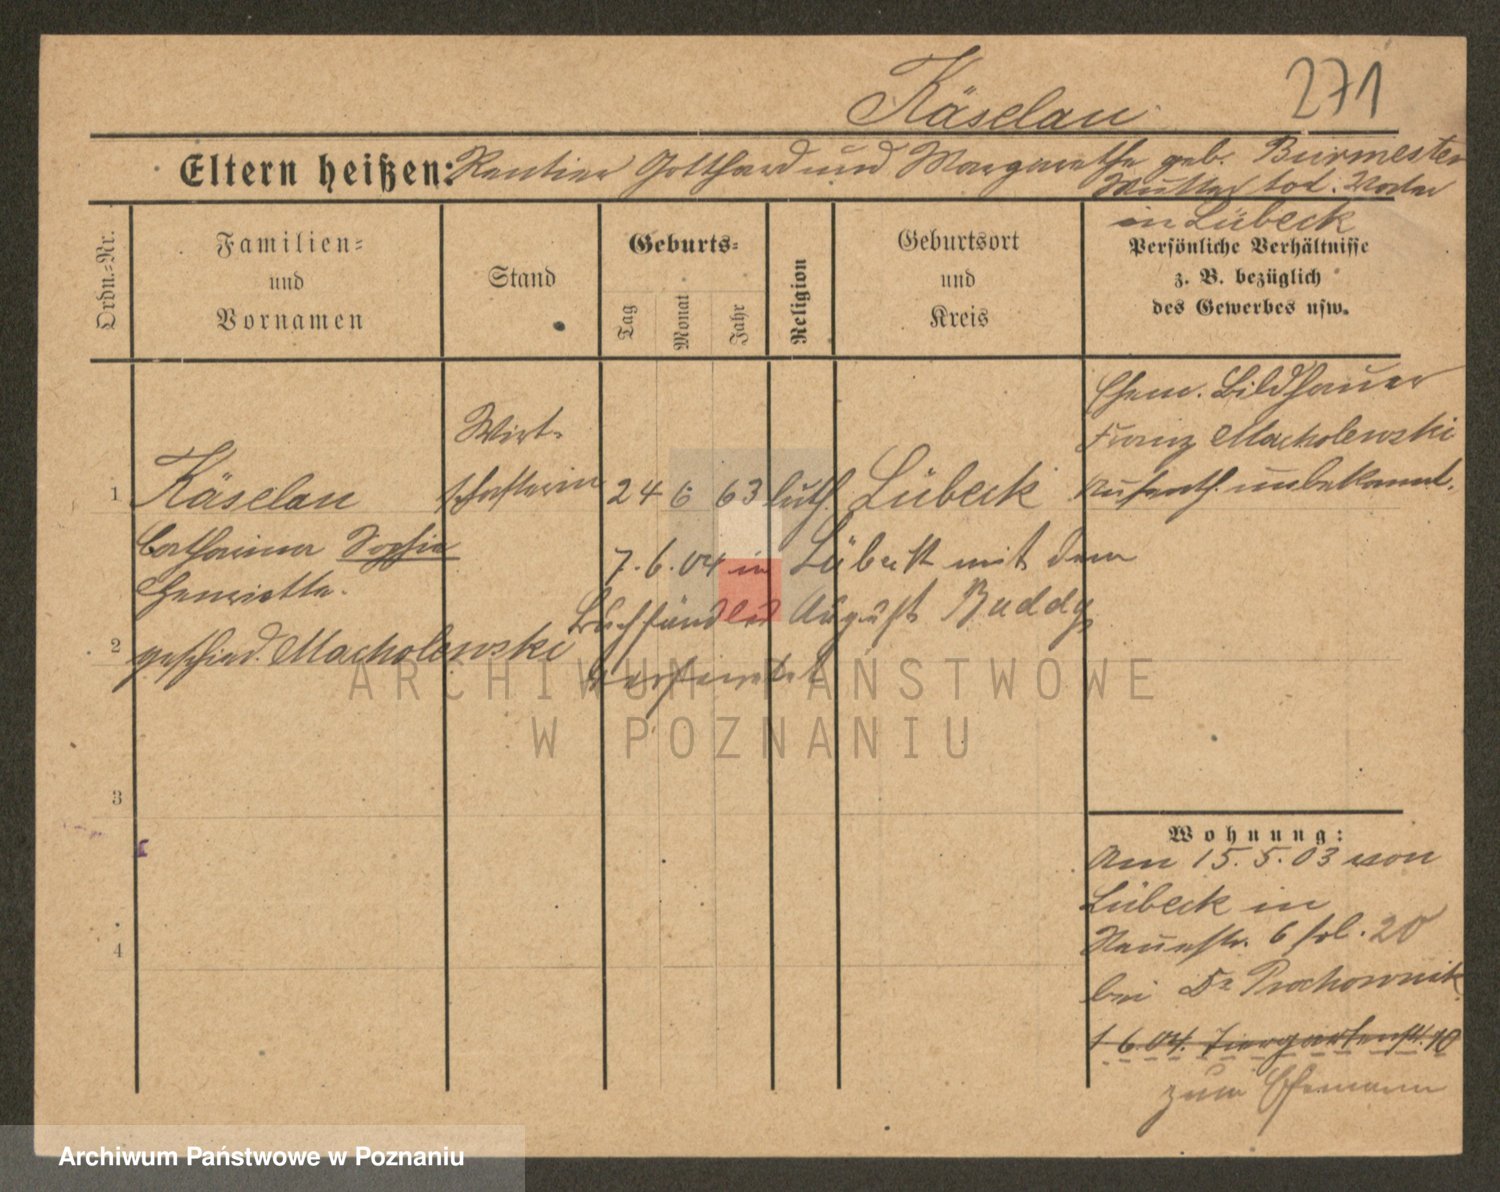 271
Käselau
Eltern heißen: Rentier Gotthard und Margarethe geb. Burmester
Mutter tod. Vater
in Lübeck
Ordn.-Nr.
Familien-
und
Vornamen
Stand
Geburts-
Tag
Monat
Jahr
Religion
Geburtsort
und
Kreis
Persönliche Verhältnisse
z. B. bezüglich
des Gewerbes usw.
Ehem. Bildhauer
Franz Macholewski
Aufenth. unbekannt.
Wirt-
1 Käselau schafterin 24 6 63 luth. Lübeck
Catharina Sophie
Henriette.
geschied. Macholewski
7. 6. 04 in Lübeck mit dem
Buchhändler August Buddy
verheiratet
2
3
4
Wohnung:
Am 15. 5. 03 von
Lübeck in
Neuestr. 6 bei Dr Prochownik
1 6. 04. Tiergartenstr. 10
zum Ehemann
ARCHIWUM PAŃSTWOWE
W POZNANIU
Archiwum Państwowe w Poznaniu